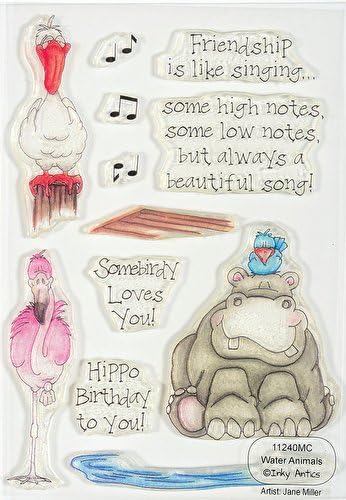 Friendship
is like singing...
some high notes,
some low notes,
but always a
beautiful song!
Somebirdy
Loves
You!
Hippo
Birthday
to You!
11240MC
Water Animals
©Inky Antics
Artist: Jane Miller